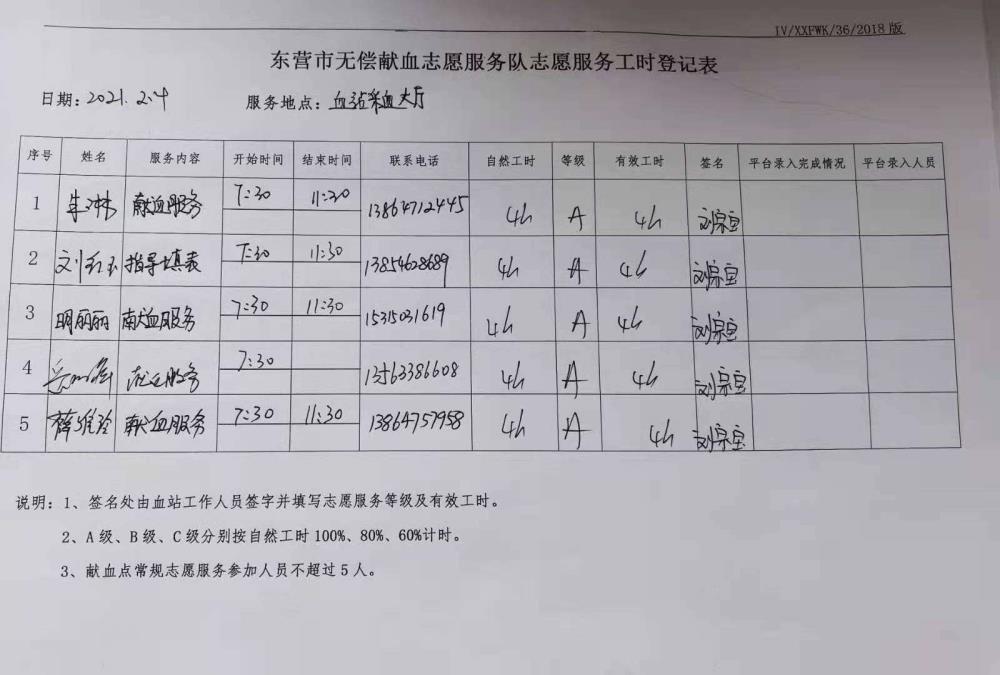 IV/XXFWK/36/2018版
东营市无偿献血志愿服务队志愿服务工时登记表
日期：2021.2.4 服务地点：血站采血大厅
序号 姓名 服务内容 开始时间 结束时间 联系电话 自然工时 等级 有效工时 签名 平台录入完成情况 平台录入人员
1 朱琳 献血服务 7:30 11:30 13864712445 4h A 4h 刘宗宝
2 刘红玉 指导填表 7:30 11:30 13854628689 4h A 4h 刘宗宝
3 明丽丽 献血服务 7:30 11:30 15315031619 4h A 4h 刘宗宝
4 献血服务 7:30 13563386608 4h A 4h 刘宗宝
5 薛维玲 献血服务 7:30 11:30 13864757958 4h A 4h 刘宗宝
说明：1、签名处由血站工作人员签字并填写志愿服务等级及有效工时。
2、A级、B级、C级分别按自然工时100%、80%、60%计时。
3、献血点常规志愿服务参加人员不超过5人。